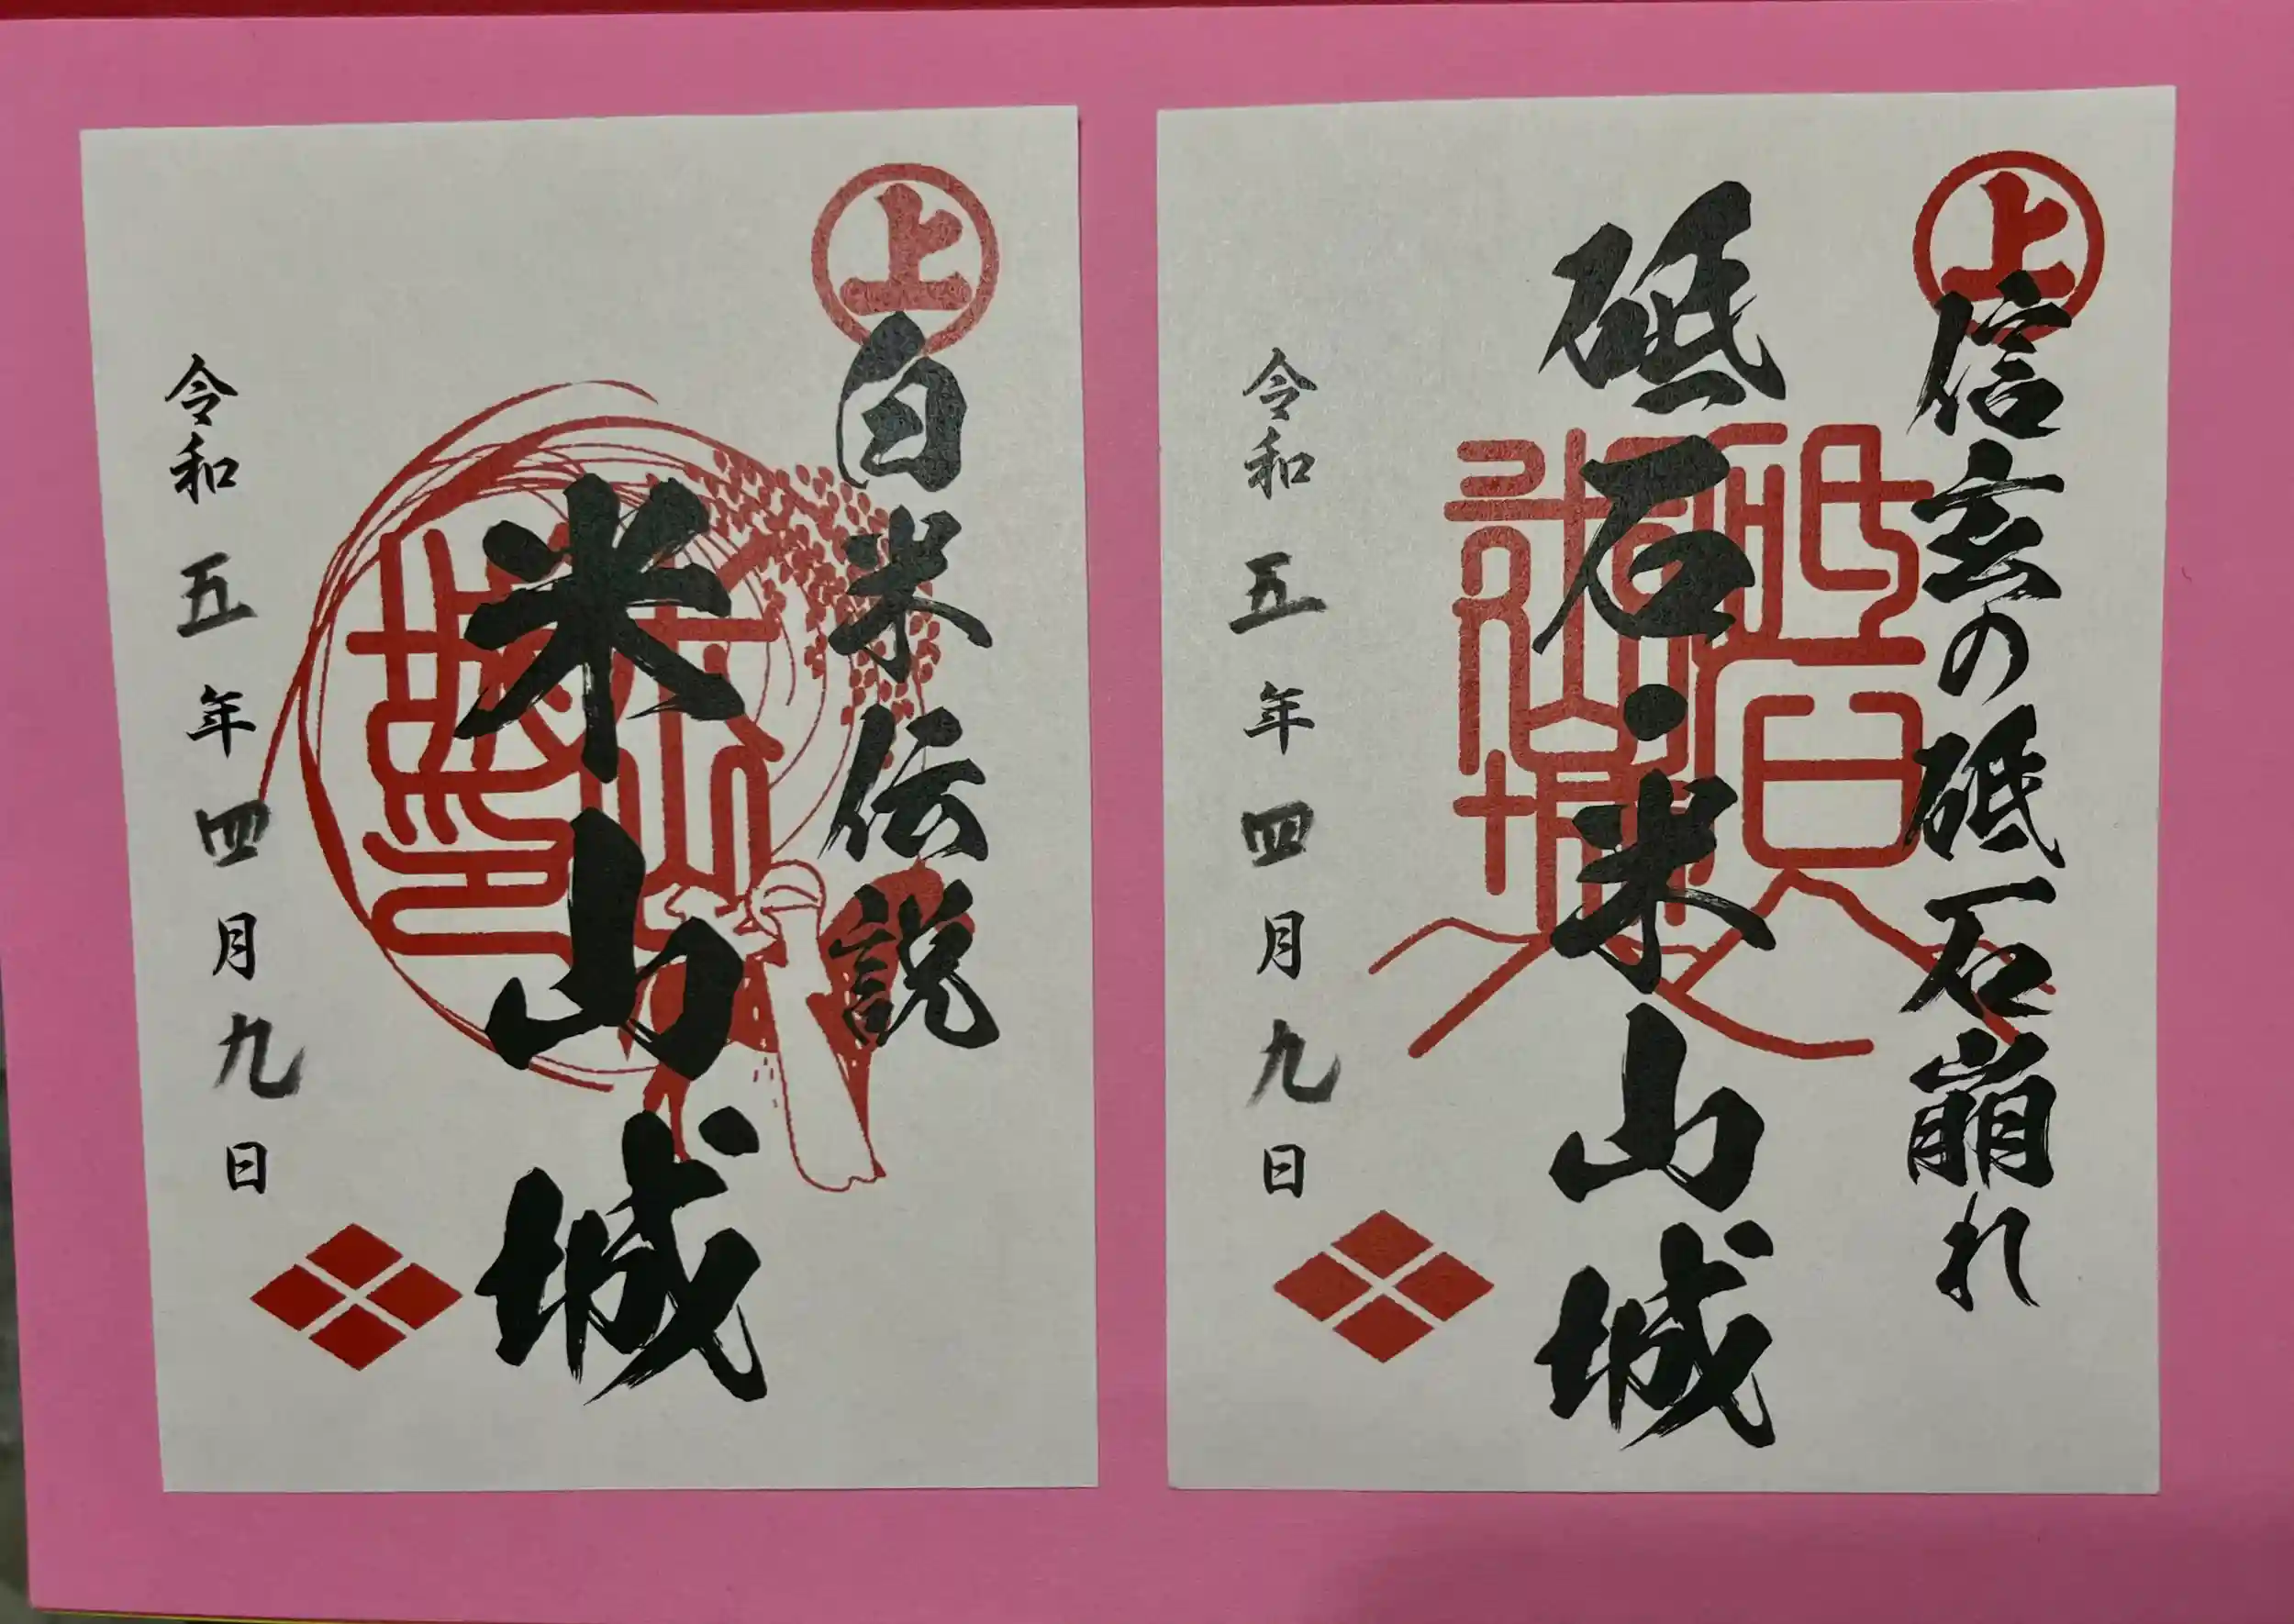 上
信玄の砥石崩れ
砥石・米山城
令和五年四月九日
上
白米伝説
米山城
令和五年四月九日